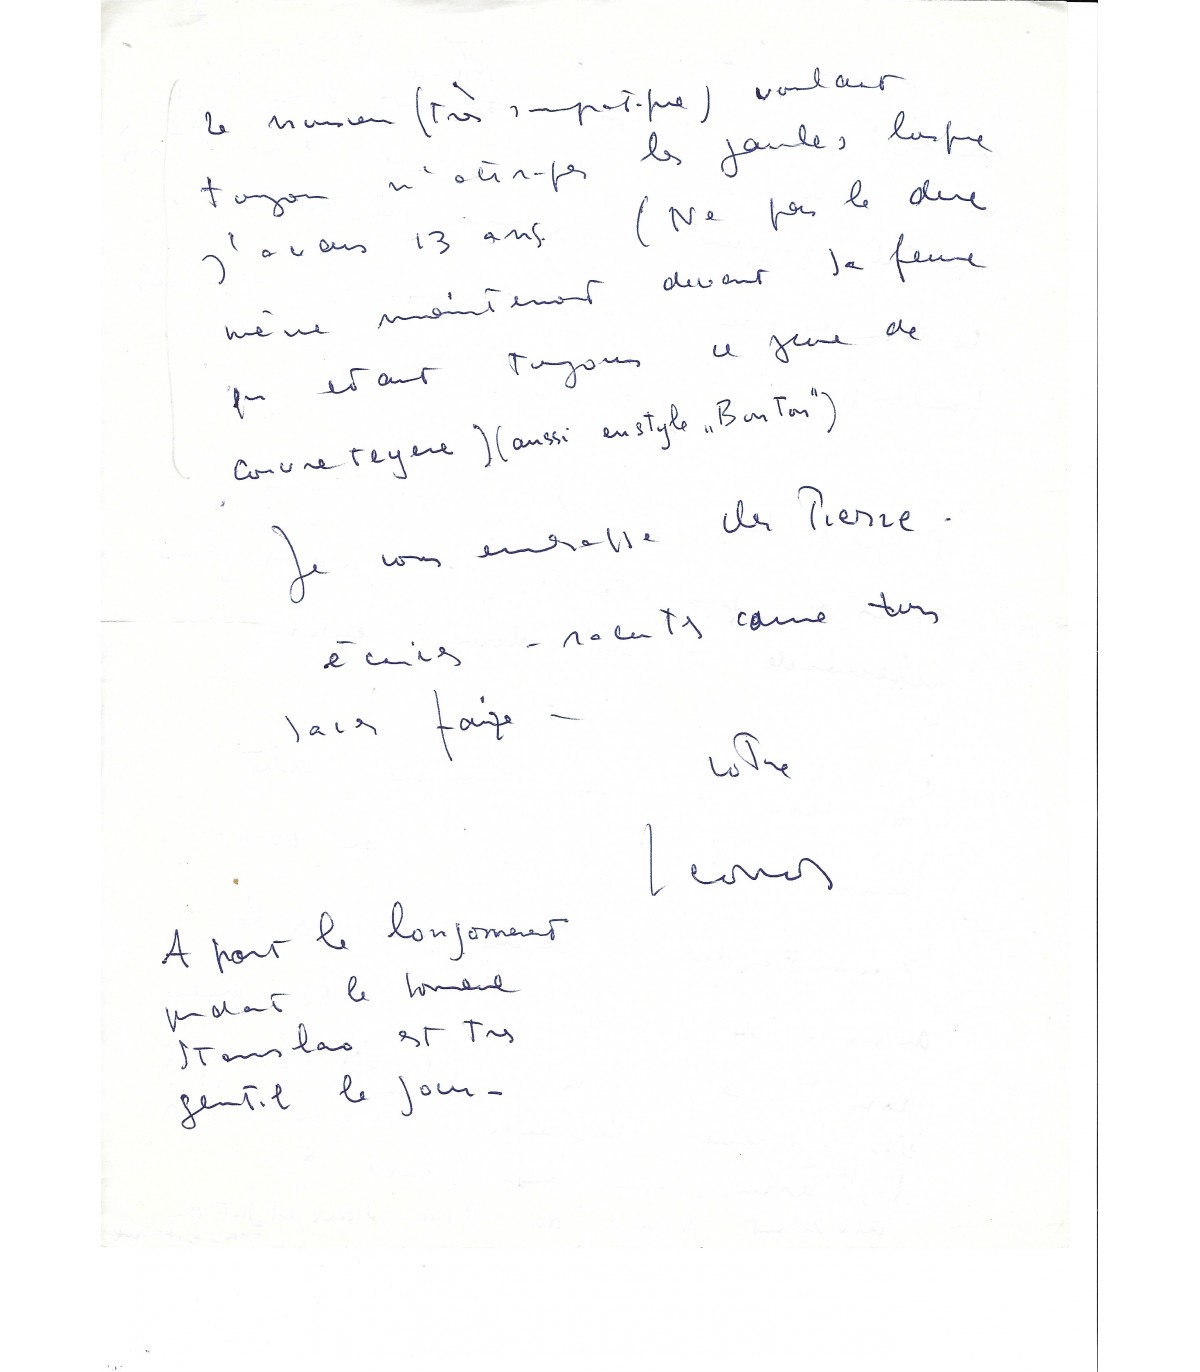 le monsieur (très sympatique) voulait
toujours m'attraper les jambes lorsque
j'avais 13 ans. (Ne pas le dire
même maintenant devant sa femme
qui étant toujours ce genre de
) (aussi en style „Bon Ton")
Je vous embrasse cher Pierre.
écrivez - racontez comme tu
savez faire -
votre
Leonor
A part le
pendant le
Stanislao est très
gentil le jour -